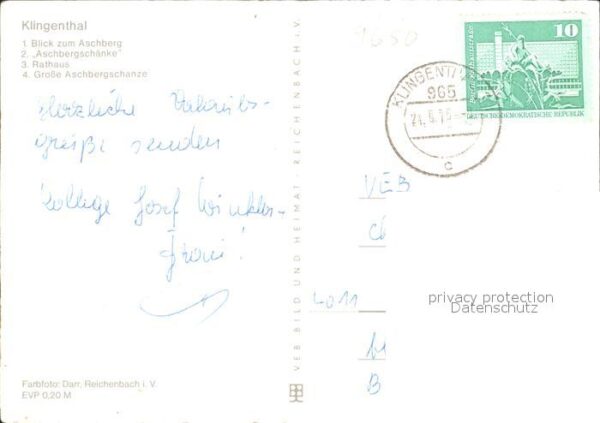 Klingenthal
1. Blick zum Aschberg
2. „Aschbergschänke"
3. Rathaus
4. Große Aschbergschanze
Herzliche Urlaubs-
grüße senden
Kollege Josef Winkler-
Frau!
Farbfoto: Darr, Reichenbach i. V.
EVP 0,20 M
VEB BILD UND HEIMAT · REICHENBACH i. V.
9650
10
DEUTSCHE DEMOKRATISCHE REPUBLIK
965
c
VEB
4011
B
privacy protection
Datenschutz